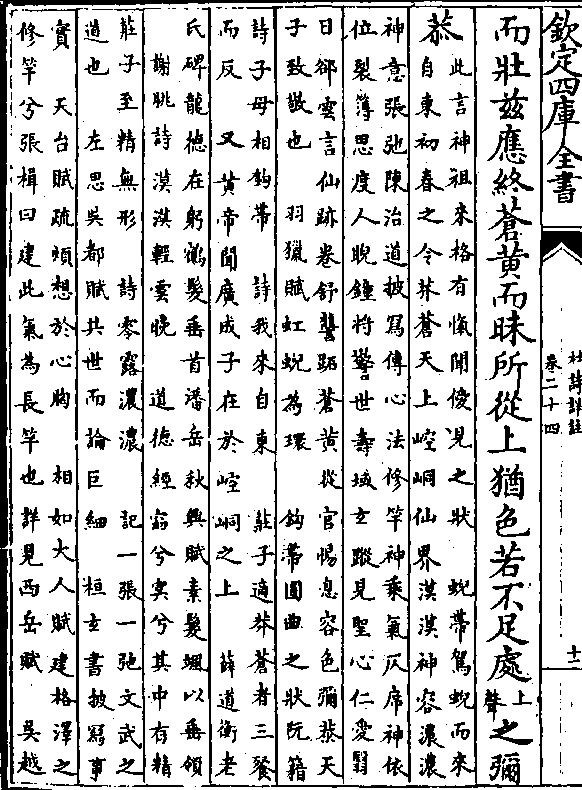 欽定四庫全書
杜詩詳註
卷二十四
十二
而壯茲應終蒼黃而昧所從上猶色若不足處上聲之彌
恭
此言神祖來格有愾聞僾見之狀 蜺帶駕蜺而來
自東初春之令莽蒼天上崆峒仙界漠漠神容濃濃
神意張弛陳治道披寫傳心法修竿神乘氣仄席神依
位裂簿思度人睨鍾將警世壽域玄蹤見聖心仁愛翳
日卻雲言仙跡卷舒蒼黃從官惕息容色彌恭天
子致敬也 羽獵賦虹蜺為環 鉤帶圜曲之狀阮籍
詩子母相鉤帶 詩我來自東 莊子適莽蒼者三餐
而反 又黃帝聞廣成子在於崆峒之上 薛道衡老
氏碑龍德在躬鶴髮垂首潘岳秋興賦素髮颯以垂領
謝朓詩漠漠輕雲晚 道德經窈兮冥兮其中有精
莊子至精無形 詩零露濃濃 記一張一弛文武之
道也 左思吳都賦共世而論巨細 桓玄書披寫事
實 天台賦疏煩想於心胸 相如大人賦建格澤之
修竿兮張楫曰建此氣為長竿也詳見西岳賦 吳越